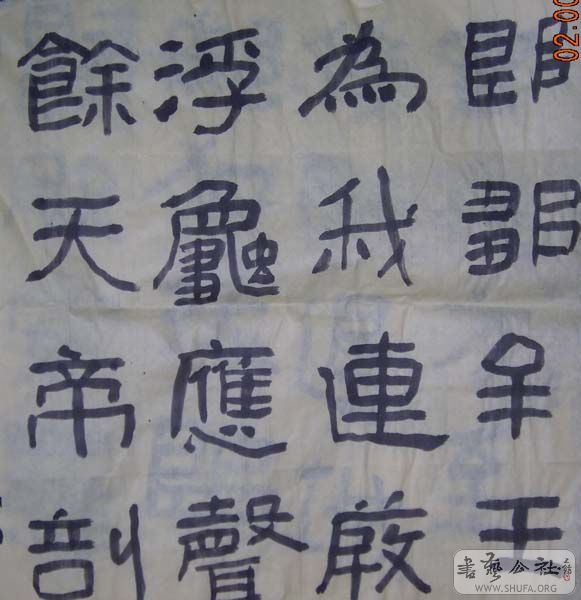 郎鄒牟王
為我連葭
浮龜應聲
餘天帝剖
書藝公社
WWW.SHUFA.ORG